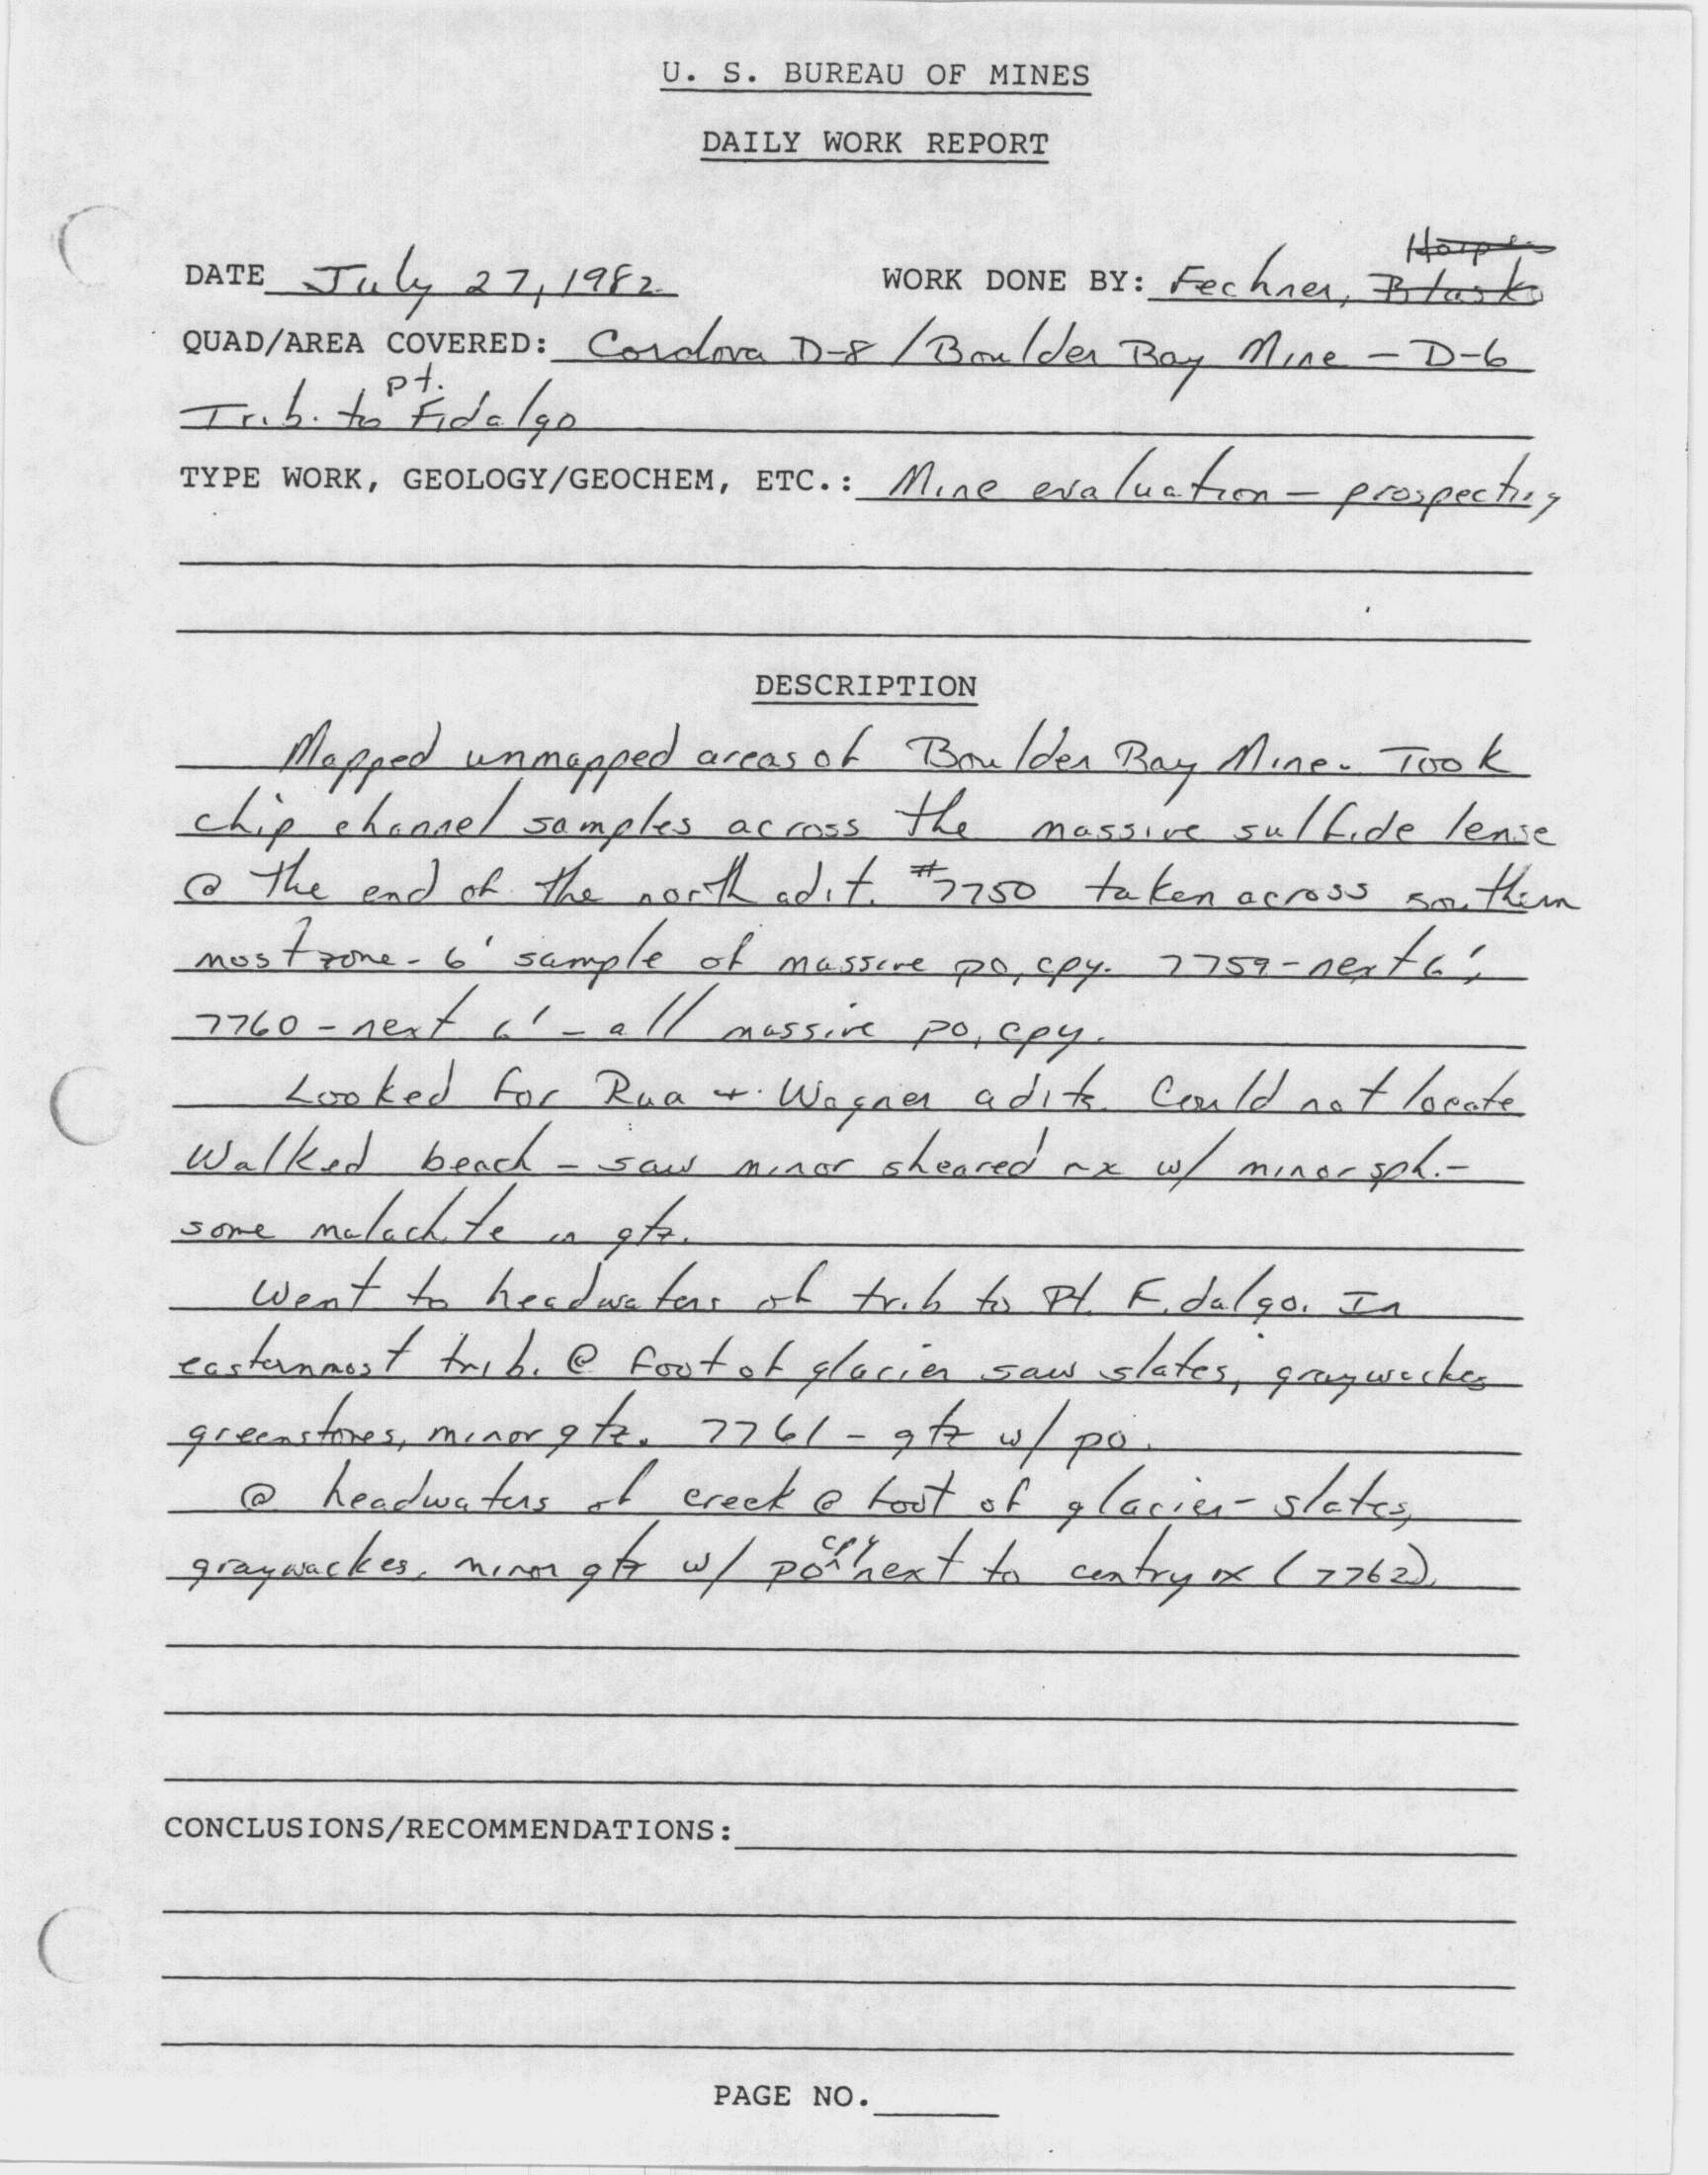 U. S. BUREAU OF MINES
DAILY WORK REPORT
DATE July 27, 1982 WORK DONE BY: Fechner, Blasko
QUAD/AREA COVERED: Cordova D-8 / Boulder Bay Mine - D-6
Trib. to Pt. Fidalgo
TYPE WORK, GEOLOGY/GEOCHEM, ETC.: Mine evaluation - prospecting
DESCRIPTION
Mapped unmapped areas of Boulder Bay Mine. Took
chip channel samples across the massive sulfide lense
@ the end of the north adit. #7750 taken across southern
most zone - 6' sample of massive po, cpy. 7759 - next 6',
7760 - next 6' - all massive po, cpy.
Looked for Rua + Wagner adits. Could not locate
Walked beach - saw minor sheared rx w/ minor sph. -
some malachite in qtz.
Went to headwaters of trib to Pt. Fidalgo. In
easternmost trib. @ foot of glacier saw slates, graywackes
greenstones, minor qtz. 7761 - qtz w/ po.
@ headwaters of creek @ foot of glacier - slates,
graywackes, minor qtz w/ po, cpy next to contry rx (7762).
CONCLUSIONS/RECOMMENDATIONS:
PAGE NO.